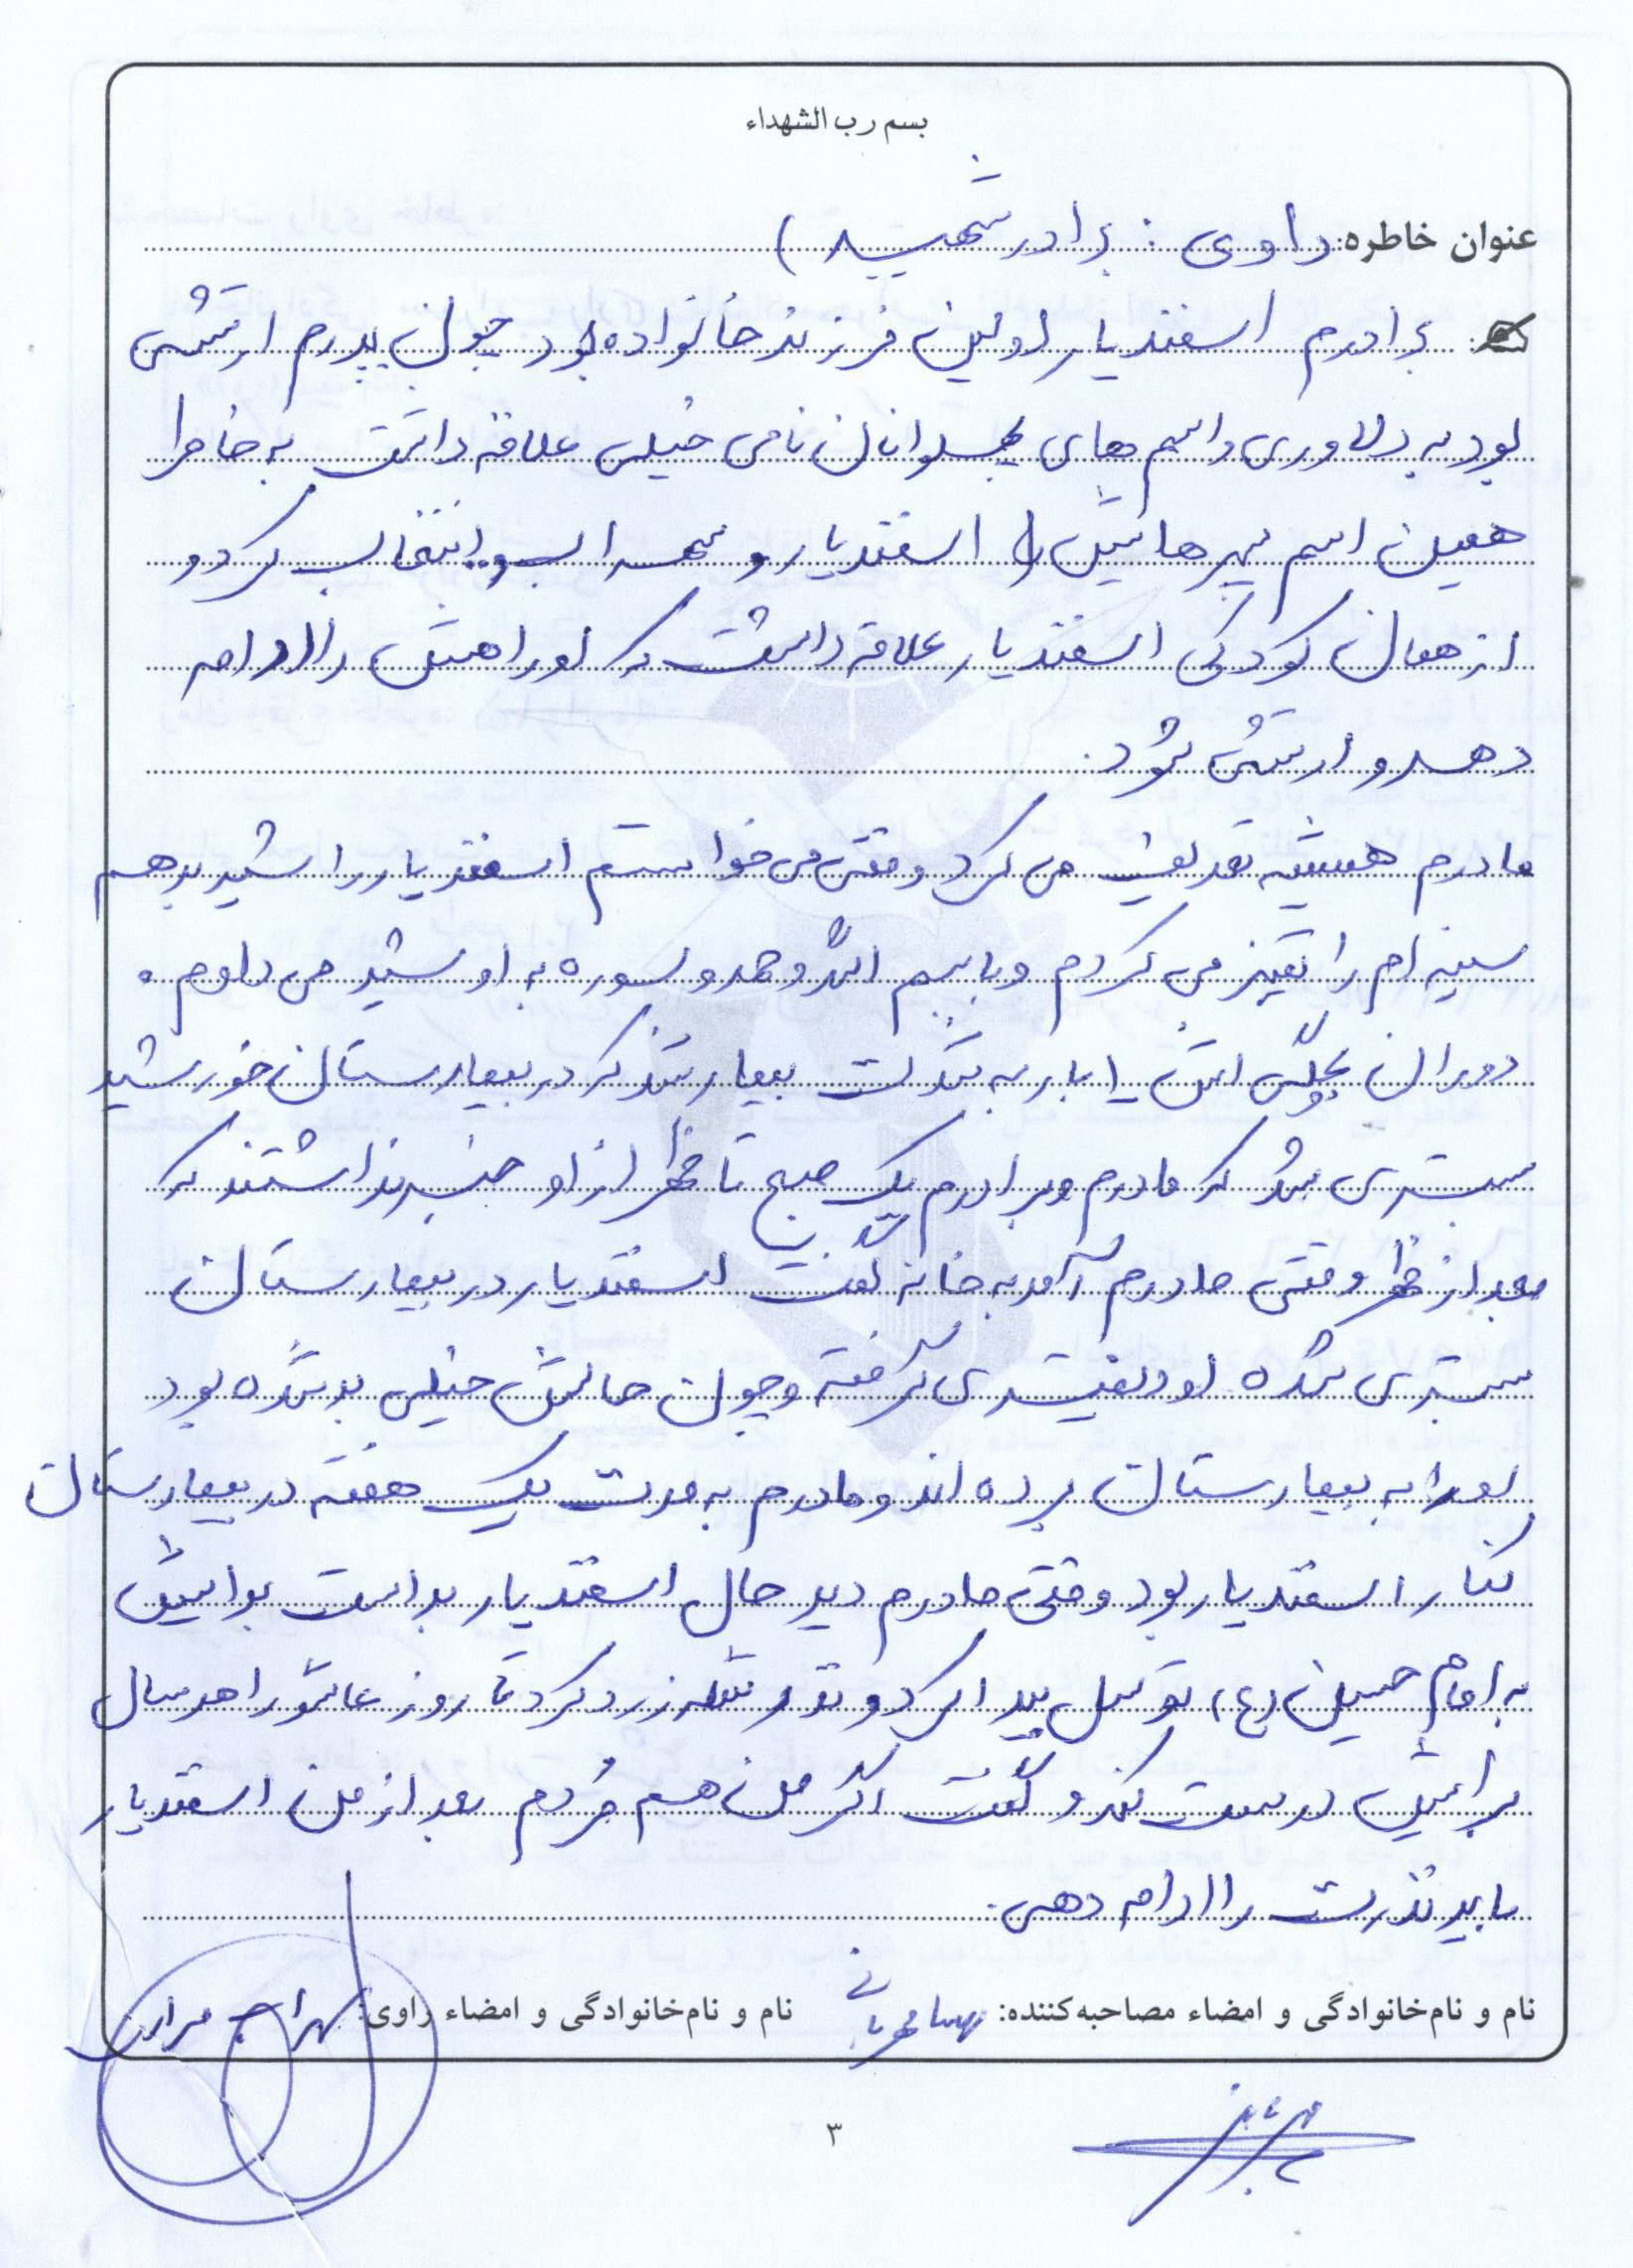 بسم رب الشهداء
عنوان خاطره: راوی : برادر شهید )
برادرم اسفندیار اولین فرزند خانواده بود چون پدرم ارتشی
بود به دلاوری و اسم های پهلوانان نامی خیلی علاقه داشت به خاطر
همین اسم پسرهایش را اسفندیار و سهراب و .. انتخاب کرد و
از همان کودکی اسفندیار علاقه داشت که او راهش را ادامه
دهد و ارتشی شود.
مادرم همیشه تعریف می کرد وقتی می خواستم اسفندیار را شیر بدهم
سینه ام را تمیز می کردم و با بسم الله و حمد و سوره به او شیر می دادم.
دوران بچگی اش ۱ بار به شدت بیمار شد که در بیمارستان خورشید
بستری شد که مادرم و برادرم یک صبح تا ظهر از او خبر نداشتند که
بعد از ظهر وقتی مادرم آمد به خانه گفت اسفندیار در بیمارستان
بستری شده او دیفتری گرفته و چون حالش خیلی بد شده بود
او را به بیمارستان برده اند و مادرم به مدت یک هفته در بیمارستان
کنار اسفندیار بود وقتی مادرم دید حال اسفندیار بد است برایش
به امام حسین (ع) توسل پیدا کرد و نذر شله زرد کرد تا روز عاشورا هر سال
برایش درست کند و گفت اگر من هم مُردم بعد از من اسفندیار
باید نذرت را ادامه دهی.
نام و نام‌خانوادگی و امضاء مصاحبه‌کننده: نام و نام‌خانوادگی و امضاء راوی:
۳